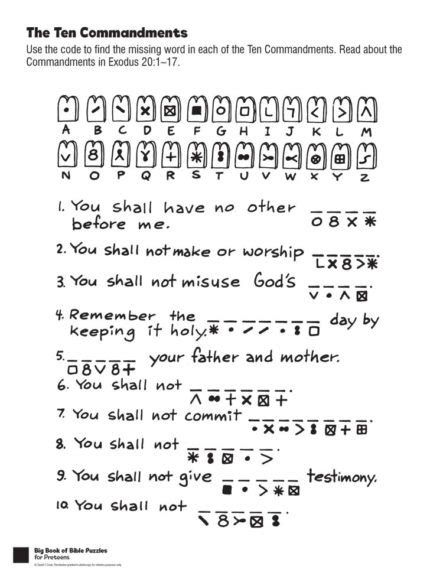 The Ten Commandments
Use the code to find the missing word in each of the Ten Commandments. Read about the
Commandments in Exodus 20:1–17.
A B C D E F G H I J K L M
N O P Q R S T U V W X Y Z
1. You shall have no other
before me.
2. You shall not make or worship
3. You shall not misuse God's
4. Remember the day by
keeping it holy.
5. your father and mother.
6. You shall not
7. You shall not commit
8. You shall not
9. You shall not give testimony.
10. You shall not
Big Book of Bible Puzzles
for Preteens